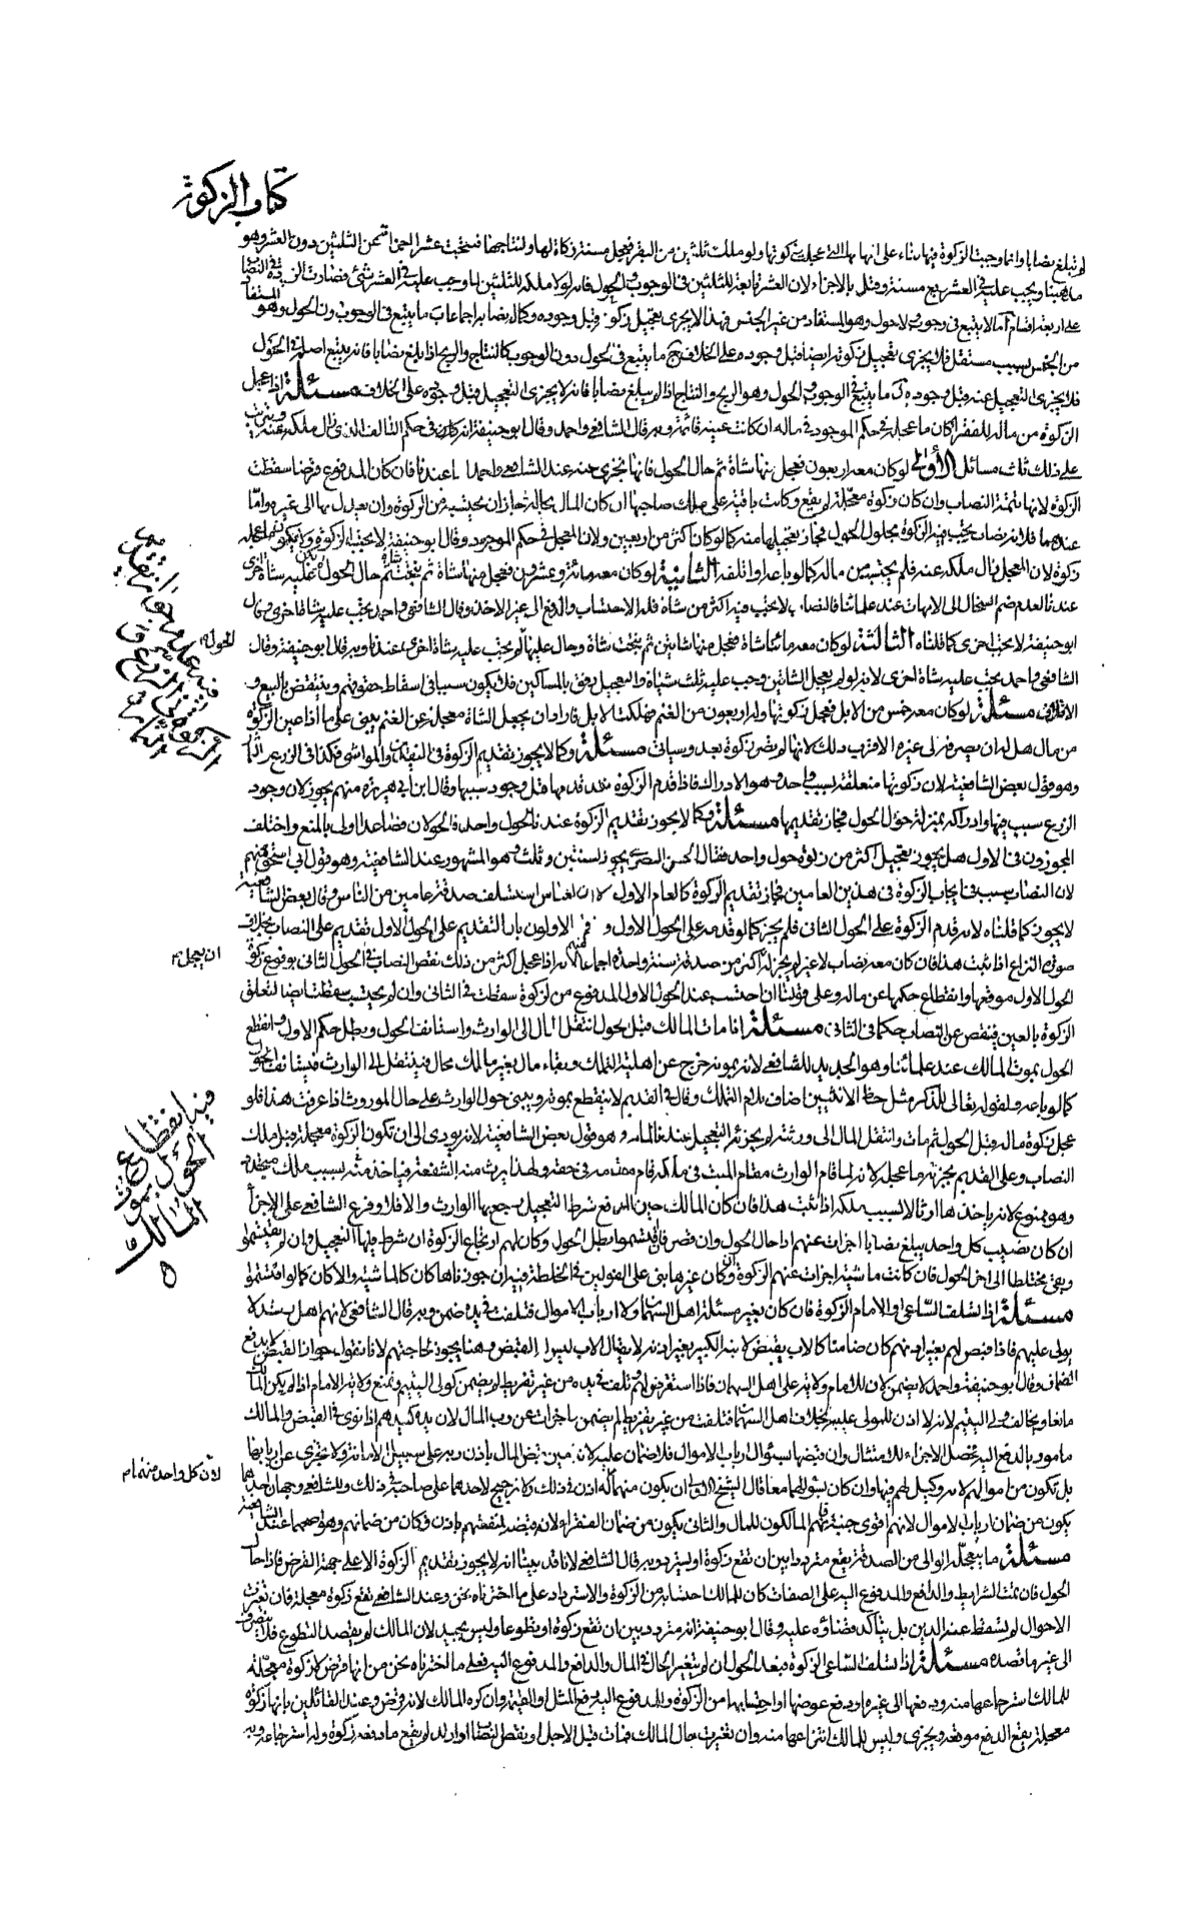 كتاب الزكوة
لم تبلغ نصابا وانما وجبت الزكوة فيها بناء على انها ولو ملك ثلثين من البقر فعجل مسنة زكاة لها ولنتاجها فنتجت عشرا اجزأت عن الثلثين دون العشر وهو
مذهبنا ويجب عليه في العشر ربع مسنة وقيل بالاجزاء لان العشر تابعة للثلثين في الوجوب والحول فانه لولا ملكه للثلثين لما وجب عليه في العشر شئ فصارت الزيادة في النصاب
على اربعة اقسام آ ما لا يتبع في وجوب ولا حول وهو المستفاد من غير الجنس فهذا لا يجزى تعجيل زكوته قبل وجوده وكمال نصابه اجماعا ب ما يتبع في الوجوب دون الحول وهو المستفاد
من الجنس بسبب مستقل فلا يجزى تعجيل زكوته ايضا قبل وجوده على الخلاف ج ما يتبع في الحول دون الوجوب كالنتاج والربح اذا بلغ نصابا فانه يتبع اصله في الحول
فلا يجزى التعجيل عنه قبل وجوده د ما يتبع في الوجوب والحول وهو الربح والنتاج اذا لم يبلغ نصابا فانه لا يجزى التعجيل قبل وجوده على الخلاف مسئلة اذا عجل
الزكوة من ماله للفقراء كان ما عجله في حكم الموجود في ماله ان كانت عينه قائمة وبه قال الشافعي واحمد وقال ابو حنيفة انه كان في حكم التالف الذي زال ملكه عنه ويترتب
على ذلك ثلاث مسائل الأولى لو كان معه اربعون فعجل منها شاة ثم حال الحول فانها تجزى عنه عند الشافعي واحمد اما عندنا فان كان المدفوع قرضا سقطت
الزكوة لانها ثلمت النصاب وان كان زكوة معجلة لم يقع وكانت باقية على ملك صاحبها ان كان المال بحاله جاز ان يحتسبه من الزكوة وان يعدل بها الى غيره واما
عندهما فلانه نصاب يجب فيه الزكوة بحلول الحول فجاز تعجيلها منه كما لو كان اكثر من اربعين ولان المعجل في حكم الموجود وقال ابو حنيفة لا يجب الزكوة ولا يكون ما عجله
زكوة لان المعجل زال ملكه عنه فلم يحتسب من ماله كما لو باعه او اتلفه الثانية لو كان معه مائة وعشرون فعجل منها شاة ثم نتجت شاة ثم حال الحول لم يكن عليه شاة اخرى
عندنا لعدم ضم السخال الى الامهات عند علمائنا فالنصاب لا يجب فيه اكثر من شاة فله الاحتساب والدفع الى غير الاخذ وقال الشافعي واحمد يجب عليه شاة اخرى وقال
ابو حنيفة لا يجب اخرى كما قلناه الثالثة لو كان معه مائتا شاة فعجل منها شاتين ثم نتجت شاة وحال عليها الحول لم يجب عليه شاة اخرى عندنا وبه قال ابو حنيفة وقال
الشافعي واحمد يجب عليه شاة اخرى لانه لو لم يعجل الشاتين وجب عليه ثلث شياة والتعجيل رفق بالمساكين فلا يكون سببا في اسقاط حقوقهم وينتقض بالبيع و
الاتلاف مسئلة لو كان معه خمس من الابل فعجل زكوتها وله اربعون من الغنم فهلكت الابل فاراد ان يجعل الشاة معجلة عن الغنم يبنى على ما اذا عين الزكوة
من مال هل له ان يصرفه الى غيره الاقرب ذلك لانها لم يصر زكوة بعد وسياتي مسئلة وكما لا يجوز تقديم الزكوة في النقدين والمواشي فكذا في الزرع والثمار
وهو قول بعض الشافعية لان زكوتها متعلقة بسبب واحد وهو الادراك فاذا قدم الزكوة فقد قدمها قبل وجود سببها وقال ابن ابي هريرة منهم يجوز لان وجود
الزرع سبب فيها وادراكه بمنزلة حؤل الحول فجاز تقديمها مسئلة وكما لا يجوز تقديم الزكوة عندنا لحول واحد فالحولان فصاعدا اولى بالمنع واختلف
المجوزون في الاول هل يجوز تعجيل اكثر من زكوة حول واحد فقال الحسن البصري يجوز لسنتين وثلث وهو المشهور عند الشافعية وهو قول ابي اسحق منهم
لان النصاب سبب في ايجاب الزكوة في هذين العامين فجاز تقديم الزكوة كالعام الاول لان العباس استسلف صدقة عامين من الناس وقال بعض الشافعية
لا يجوز كما قلناه لانه قدم الزكوة على الحول الثاني فلم يجز كما لو قدمه على الحول الاول وفرق الاولون بان التقديم على الحول الاول تقديم على النصاب بخلاف
صورة النزاع اذا ثبت هذا فان كان معه نصاب لا غير لم يجز له اكثر من صدقة سنة واحدة اجماعا منهم لانه اذا عجل اكثر من ذلك نقص النصاب في الحول الثاني بوقوع زكوة
الحول الاول موقعها وانقطاع حكمها عن ماله وعلى قولنا ان احتسب عند الحول الاول المدفوع من الزكوة سقطت في الثاني وان لم يحتسب سقطت ايضا لتعلق
الزكوة بالعين فينقص عن النصاب حكما في الثاني مسئلة اذا مات المالك قبل الحول انتقل المال الى الوارث واستانف الحول وبطل حكم الاول وانقطع
الحول بموت المالك عند علمائنا وهو الجديد للشافعي لانه بموته خرج عن اهلية التملك وبقاء مال بغير مالك محال فينتقل الى الوارث فيستانف الحول
كما لو باعه ولقوله تعالى للذكر مثل حظ الانثيين اضاف بلام التملك وقال في القديم لا ينقطع بموته ويبنى حول الوارث على حال الموروث اذا عرفت هذا فلو
عجل زكوة ماله قبل الحول ثم مات وانتقل المال الى ورثته لم يجزئه التعجيل عندنا لما مر وهو قول بعض الشافعية لانه يؤدى الى ان تكون الزكوة معجلة قبل ملك
النصاب وعلى القديم يجزئه ما عجله لانه لما قام الوارث مقام الميت في ملكه قام مقامه في حقه ولهذا يرث منه الشفعة فياخذ منه بسبب ملك متجدد
وهو ممنوع لانه ياخذها ارثا لا لسبب ملكه اذا ثبت هذا فان كان المالك حين الدفع شرط التعجيل رجع بها الوارث والا فلا وفرع الشافعي على الاجزاء
ان كان نصيب كل واحد يبلغ نصابا اجزأت عنهم اذا حال الحول وان قصر فان اقتسموا بطل الحول وكان لهم ارتجاع الزكوة ان شرط فيها التعجيل وان لم يقتسموا
وبقى مختلطا الى اخر الحول فان كانت ماشية اجزأت عنهم الزكوة وان كان غيرها بنى على القولين في الخلطة فيه ان جوزناها كان كالماشية والا كان كما لو اقتسموا
مسئلة اذا تسلف الساعي او الامام الزكوة فان كان بغير مسئلة اهل السهمان ولا ارباب الاموال فتلفت في يده ضمن وبه قال الشافعي لانهم اهل رشد لا
يولى عليهم فاذا قبض لهم بغير اذنهم كان ضامنا كالاب يقبض لابنه الكبير بغير اذنه لا يقال الاب ليس له القبض وهنا يجوز لحاجتهم لانا نقول جواز القبض لا يدفع
الضمان وقال ابو حنيفة واحمد لا يضمن لان للامام ولاية على اهل السهمان فاذا استقرض لهم وتلفت في يده من غير تفريط لم يضمن كولى اليتيم ونمنع ولاية الامام اذا لم يكن المالك
مانعا ويخالف ولى اليتيم لانه لا اذن للمولى عليه بخلاف اهل السهمان فتلفت من غير تفريط لم يضمن واجزأت عن رب المال لان يده كيدهم اذا نوى في القبض والمالك
مامور بالدفع اليه فحصل الاجزاء للامتثال وان قبضها بسؤال ارباب الاموال فلا ضمان عليه لانه امين قبض المال باذن ربه على سبيل الامانة ولا يجزى عن اربابها
بل تكون من اموالهم لانه وكيل لهم فيها وان كان بسؤالهما معا قال الشيخ الاولى ان يكون منهما لانه اذن في ذلك ولا ترجيح لاحدهما على صاحبه في ذلك وللشافعي وجهان احدهما
يكون من ضمان ارباب الاموال لانهم اقوى جنبة فانهم المالكون للمال والثاني يكون من ضمان الفقراء لانه قبضه لمنفعتهم باذن فكان من ضمانهم وهو اصحهما عند الشافعية
مسئلة ما يتعجله الوالى من الصدقة يقع مترددا بين ان تقع زكوة او يسترد وبه قال الشافعي لانا قد بينا انه لا يجوز تقديم الزكوة الا على جهة القرض فاذا حال
الحول فان تمت الشرايط والدافع والمدفوع اليه على الصفات كان للمالك احتسابه من الزكوة والاسترداد على ما اخترناه نحن وعند الشافعي تقع زكوة معجلة فان تغيرت
الاحوال لم تسقط عنه الدين بل يتأكد قضاؤه عليه وقال ابو حنيفة انه متردد بين ان تقع زكوة او تطوعا وليس بجيد لان المالك لم يقصد التطوع فلا يتصرف
الى غير ما قصده مسئلة اذا تسلف الساعي الزكوة فبعد الحول ان لم تتغير الحال في المال والدافع والمدفوع اليه فعلى ما اخترناه نحن من انها قرض لا زكوة معجلة
للمالك استرجاعها منه ودفعها الى غيره او دفع عوضها او احتسابها من الزكوة وللمدفوع اليه دفع المثل او القيمة وان كره المالك لانه قرض وعند القائلين بانها زكوة
معجلة يقع الدفع موقعه ويجزى وليس للمالك انتزاعها منه وان تغيرت حال المالك فمات قبل الاجل او نقص النصاب او ارتد لم يقع ما دفعه زكوة وله استرجاعه وبه
الحول
ان يعجل
فى انقطاع الحول بموت المالك
لان كل واحد منهما